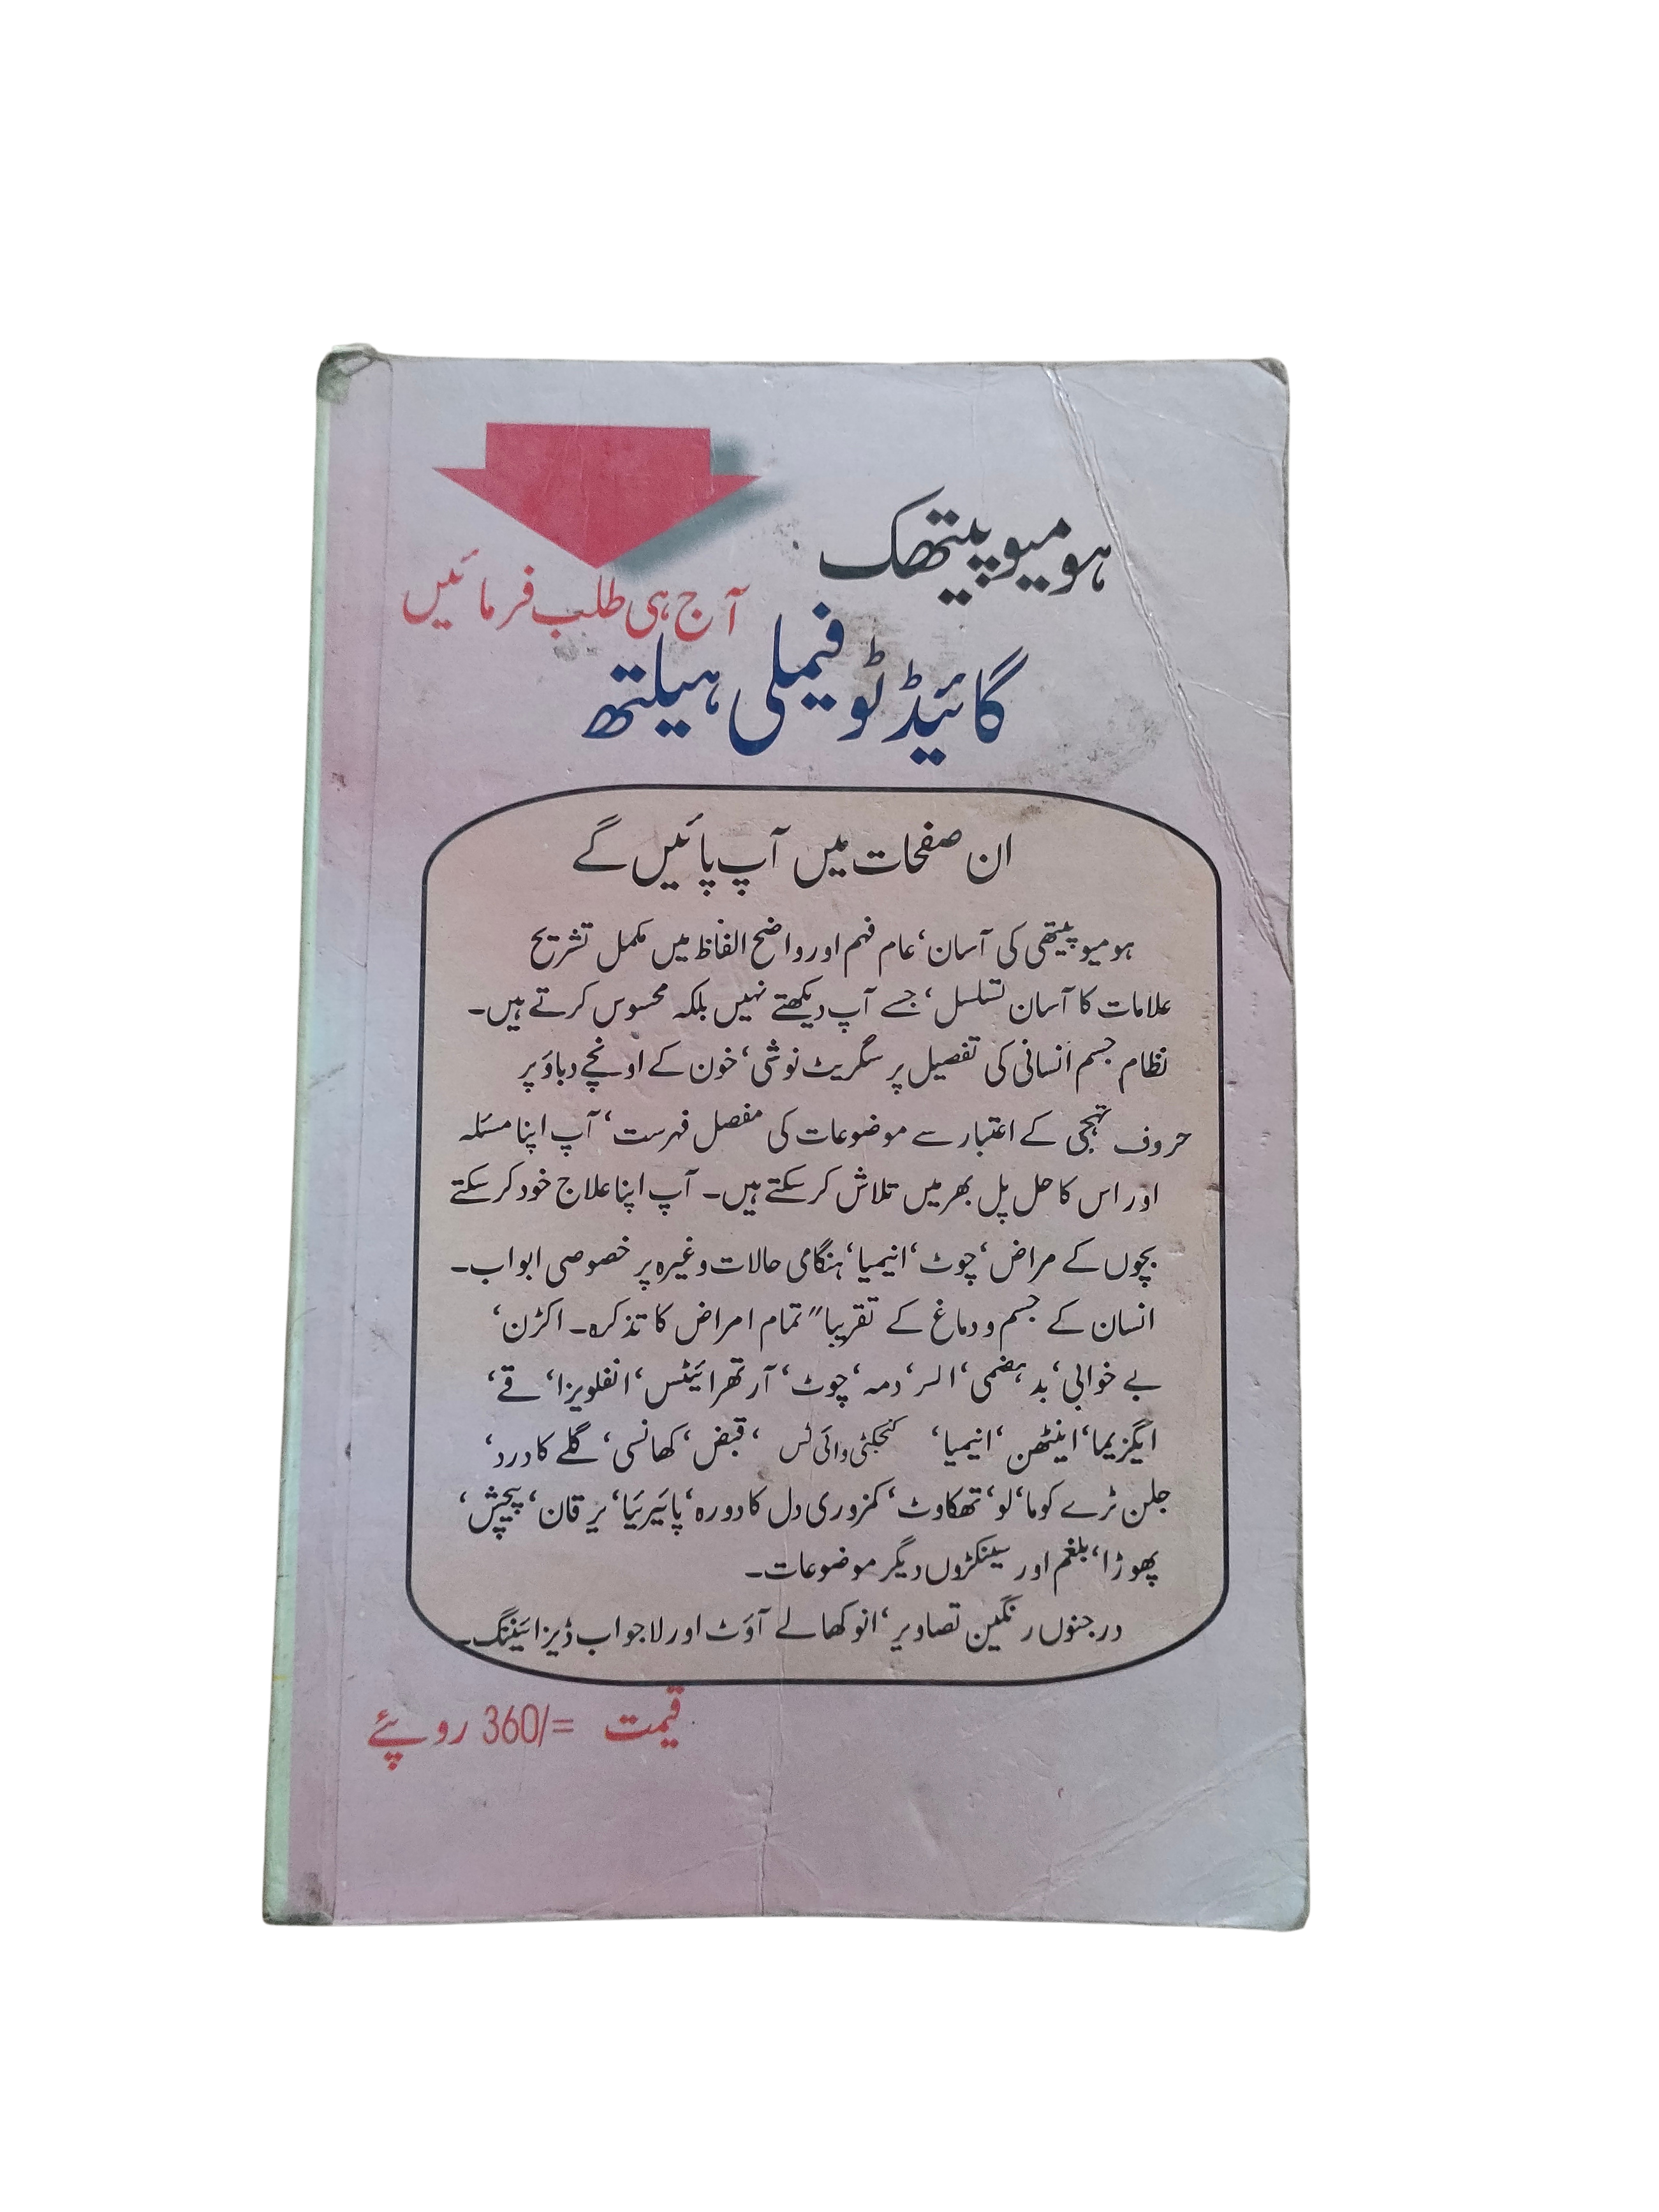 ہومیوپیتھک
آج ہی طلب فرمائیں
گائیڈ ٹو فیملی ہیلتھ
ان صفحات میں آپ پائیں گے
ہومیوپیتھی کی آسان‘ عام فہم اور واضح الفاظ میں مکمل تشریح
علامات کا آسان تسلسل‘ جسے آپ دیکھتے نہیں بلکہ محسوس کرتے ہیں۔
نظام جسم انسانی کی تفصیل پر سگریٹ نوشی‘ خون کے اونچے دباؤ پر
حروف تہجی کے اعتبار سے موضوعات کی مفصل فہرست‘ آپ اپنا مسئلہ
اور اس کا حل پل بھر میں تلاش کر سکتے ہیں۔ آپ اپنا علاج خود کر سکتے
بچوں کے مراض‘ چوٹ‘ انیمیا‘ ہنگامی حالات وغیرہ پر خصوصی ابواب۔
انسان کے جسم و دماغ کے تقریبا" تمام امراض کا تذکرہ۔ اکڑن‘
بے خوابی‘ بد ہضمی‘ السر‘ دمہ‘ چوٹ‘ آرتھرائیٹس‘ انفلویزا‘ قے‘
ایگزیما‘ اینٹھن‘ انیمیا‘ کنجکٹی وائی ٹس ‘ قبض‘ کھانسی‘ گلے کا درد‘
جلن ٹرے کوما‘ لو‘ تھکاوٹ‘ کمزوری دل کا دورہ‘ پائیریا‘ یرقان‘ پیچش‘
پھوڑا‘ بلغم اور سینکڑوں دیگر موضوعات۔
درجنوں رنگین تصاویر‘ انوکھا لے آؤٹ اور لاجواب ڈیزائیننگ۔
قیمت =/360 روپئے